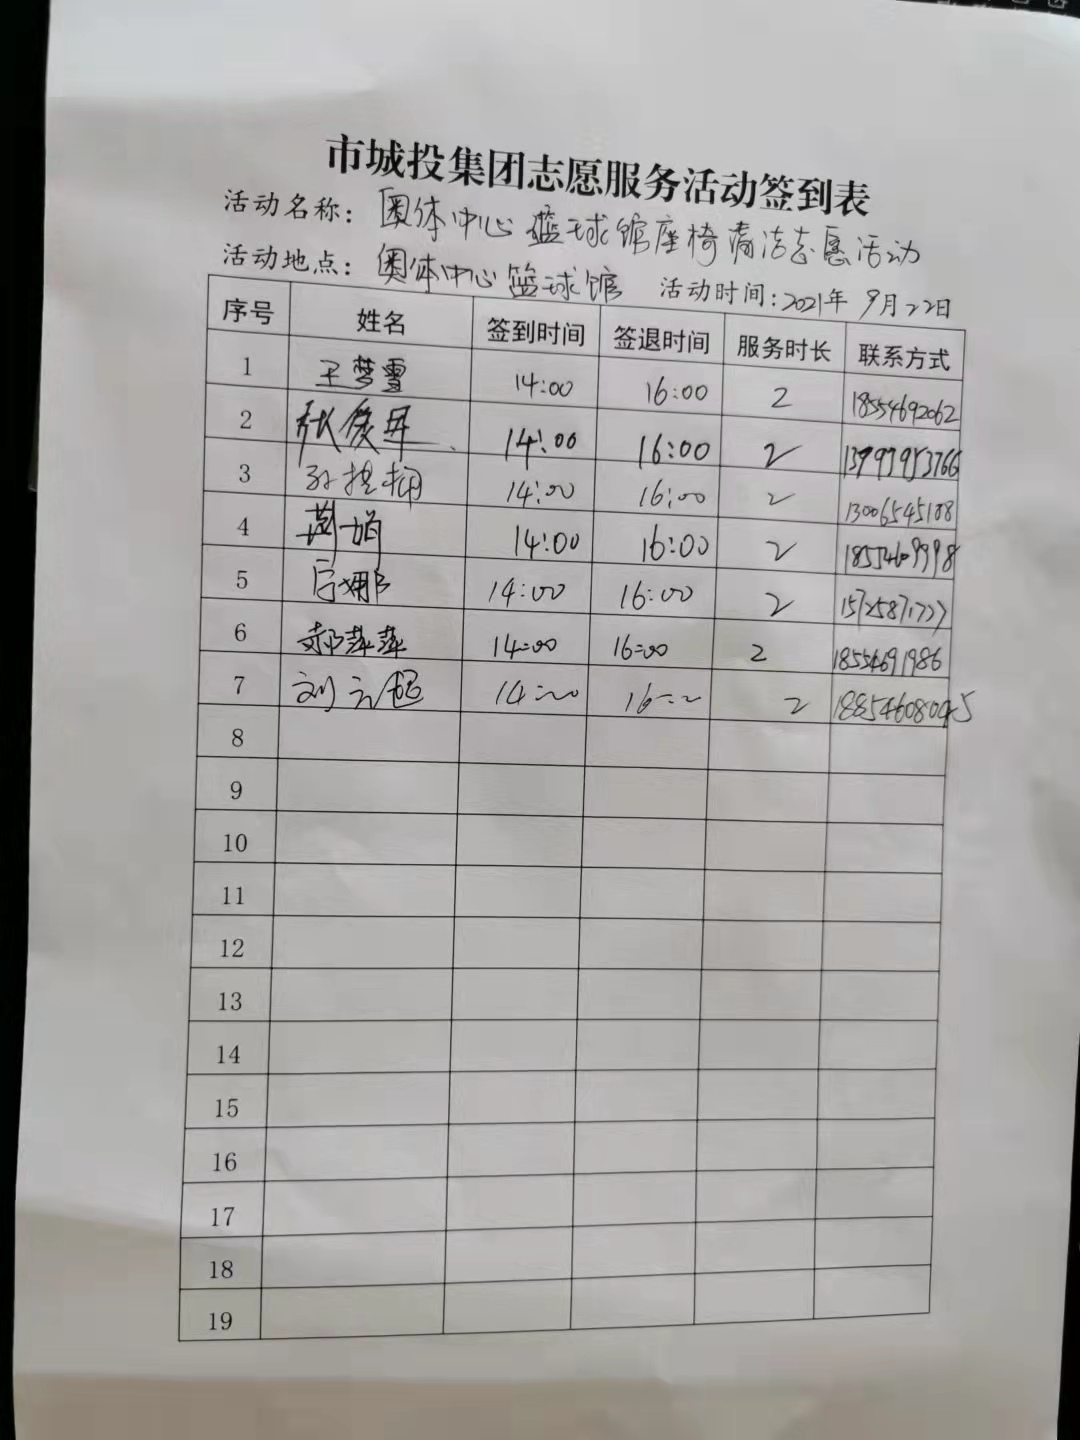 市城投集团志愿服务活动签到表
活动名称：奥体中心篮球馆座椅清洁志愿活动
活动地点：奥体中心篮球馆 活动时间：2021年 9月22日
序号 姓名 签到时间 签退时间 服务时长 联系方式
1 王梦雪 14:00 16:00 2 18554692062
2 张俊 14:00 16:00 2
3 孙 14:00 16:00 2 13006545188
4 14:00 16:00 2
5 娜 14:00 16:00 2 15725871777
6 郝萍萍 14:00 16:00 2 18554691986
7 刘云超 14:00 16:00 2 18854608045
8
9
10
11
12
13
14
15
16
17
18
19